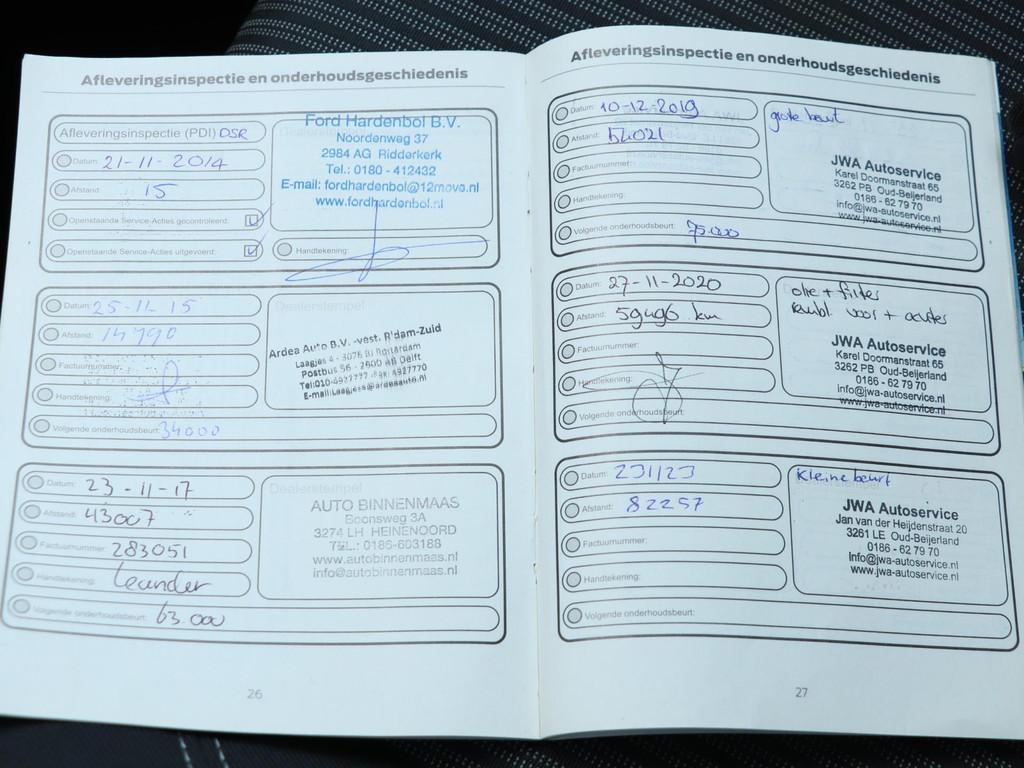 Afleveringsinspectie en onderhoudsgeschiedenis
Afleveringsinspectie (PDI) DSR
Datum: 21-11-2014
Afstand: 15
Openstaande Service-Acties gecontroleerd:
Openstaande Service-Acties uitgevoerd:
Ford Hardenbol B.V.
Noordenweg 37
2984 AG Ridderkerk
Tel.: 0180 - 412432
E-mail: fordhardenbol@12move.nl
www.fordhardenbol.nl
Handtekening:
Datum: 25-11-15
Afstand: 14790
Factuurnummer:
Handtekening:
Volgende onderhoudsbeurt: 34000
Dealerstempel
Ardea Auto B.V. -vest. R'dam-Zuid
Laagjes 4 - 3076 BJ Rotterdam
Postbus 56 - 2600 AB Delft
Tel:010-4927777 -fax: 4927770
E-mail:Laagjes@ardeaauto.nl
Datum: 23-11-17
Afstand: 43007
Factuurnummer: 283051
Handtekening: Leander
Volgende onderhoudsbeurt: 63.000
Dealerstempel
AUTO BINNENMAAS
Boonsweg 3A
3274 LH HEINENOORD
TEL.: 0186-603188
www.autobinnenmaas.nl
info@autobinnenmaas.nl
26
Afleveringsinspectie en onderhoudsgeschiedenis
Datum: 10-12-2019
Afstand: 54021
Factuurnummer:
Handtekening:
Volgende onderhoudsbeurt: 75.000
grote beurt
JWA Autoservice
Karel Doormanstraat 65
3262 PB Oud-Beijerland
0186 - 62 79 70
info@jwa-autoservice.nl
www.jwa-autoservice.nl
Datum: 27-11-2020
Afstand: 59496 km
Factuurnummer:
Handtekening:
Volgende onderhoudsbeurt:
olie + filter
voor + achter
JWA Autoservice
Karel Doormanstraat 65
3262 PB Oud-Beijerland
0186 - 62 79 70
info@jwa-autoservice.nl
www.jwa-autoservice.nl
Datum: 231123
Afstand: 82257
Factuurnummer:
Handtekening:
Volgende onderhoudsbeurt:
Kleine beurt
JWA Autoservice
Jan van der Heijdenstraat 20
3261 LE Oud-Beijerland
0186 - 62 79 70
Info@jwa-autoservice.nl
www.jwa-autoservice.nl
27